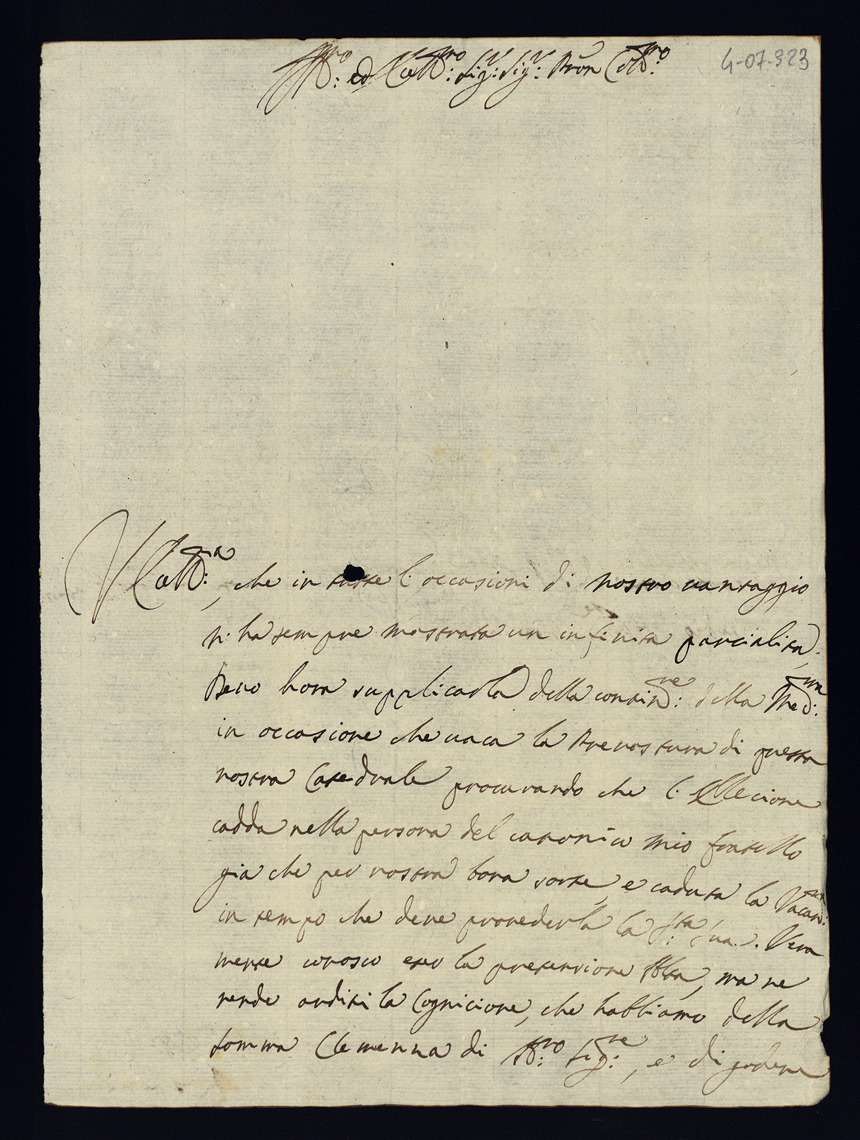 Ill.mo ed Ecc.mo Sig.r Sig.r Pron Col.mo
4-07-323
V. Ecc.za, che in tutte l'occasioni di nostro vantaggio
ci ha sempre mostrata un infinita parcialità.
Devo hora supplicarla della contin.ne della Med.ma
in occasione che vaca la Prevostura di questa
nostra Catedrale procurando che l'Ellecione
cadda nella persona del canonico mio fratello
gia che per nostra bona sorte, e caduta la Vacan.
in tempo che deve provederla la S.ta Sua. Vera
mente conosco esser la pretensione alta, ma ne
rende arditi la Cognicione, che habbiamo della
somma Clemenza di N.ro Sig.re, e di godere